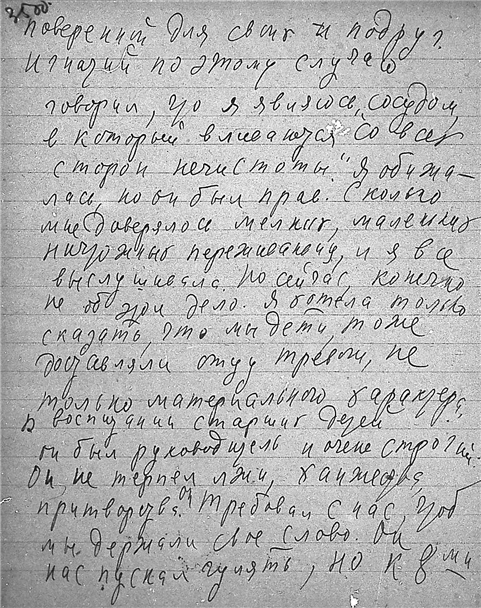 поверенной для своих и подруг.
Игнатий по этому случаю
говорил, что я являюсь „сосудом,
в который вливаются со всех
сторон нечистоты." Я обижа-
лась, но он был прав. Сколько
мне доверялось мелких, маленьких
ничтожных переживаний, и я все
выслушивала. Но сейчас, конечно
не об этом дело. Я хотела только
сказать, что мы дети, тоже
доставляли отцу тревоги, не
только материального характера,
В воспитании старших детей
он был руководитель и очень строгий.
Он не терпел лжи, ханжества,
притворства. Он требовал с нас, чтоб
мы держали свое слово. Он
нас пускал гулять, но к 8 ми